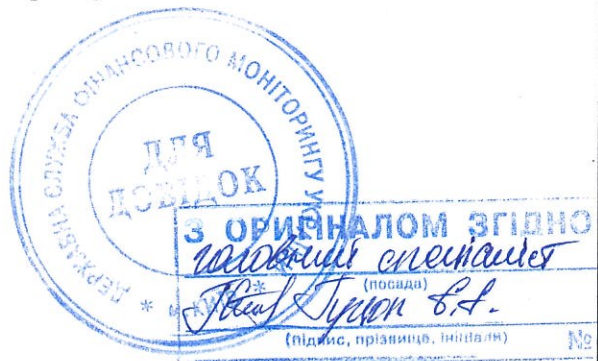 ДЕРЖАВНА СЛУЖБА ФІНАНСОВОГО МОНІТОРИНГУ УКРАЇНИ
* м. КИЇВ *
ДЛЯ
ДОВІДОК
З ОРИГІНАЛОМ ЗГІДНО
головний спеціаліст
(посада)
(підпис, прізвище, ініціали)
№